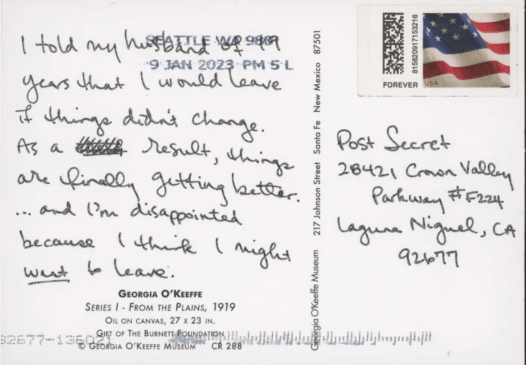 I told my husband of 19
years that I would leave
if things didn't change.
As a result, things
are finally getting better.
... and I'm disappointed
because I think I might
want to leave.
SEATTLE WA 980
9 JAN 2023 PM 5 L
GEORGIA O'KEEFFE
SERIES I - FROM THE PLAINS, 1919
OIL ON CANVAS, 27 X 23 IN.
GIFT OF THE BURNETT FOUNDATION
© GEORGIA O'KEEFFE MUSEUM CR 288
Georgia O'Keeffe Museum 217 Johnson Street Santa Fe New Mexico 87501
FOREVER
USA
Post Secret
28421 Crown Valley
Parkway #F224
Laguna Niguel, CA
92677